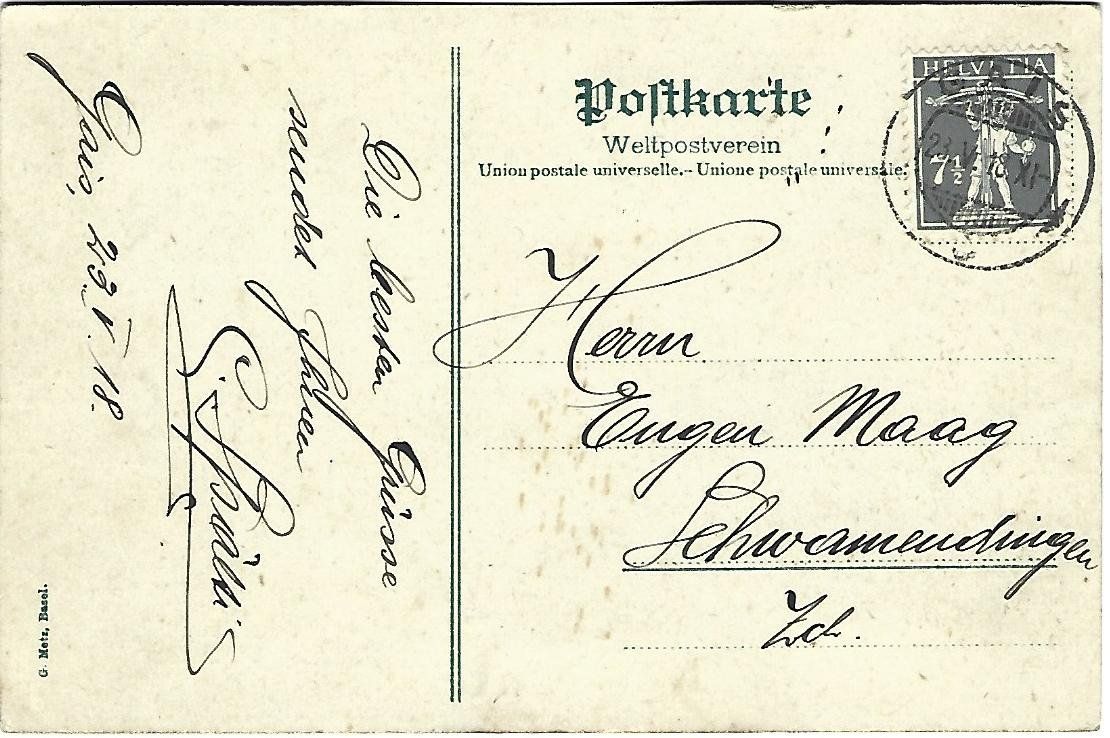 Postkarte
Weltpostverein
Union postale universelle.- Unione postale universale.
HELVETIA
7½
GAIS
Herrn
Eugen Maag
Schwamendingen
Zch.
Gais, 23. V. 18.
Die besten Grüsse
sendet Ihnen
G. Metz, Basel.